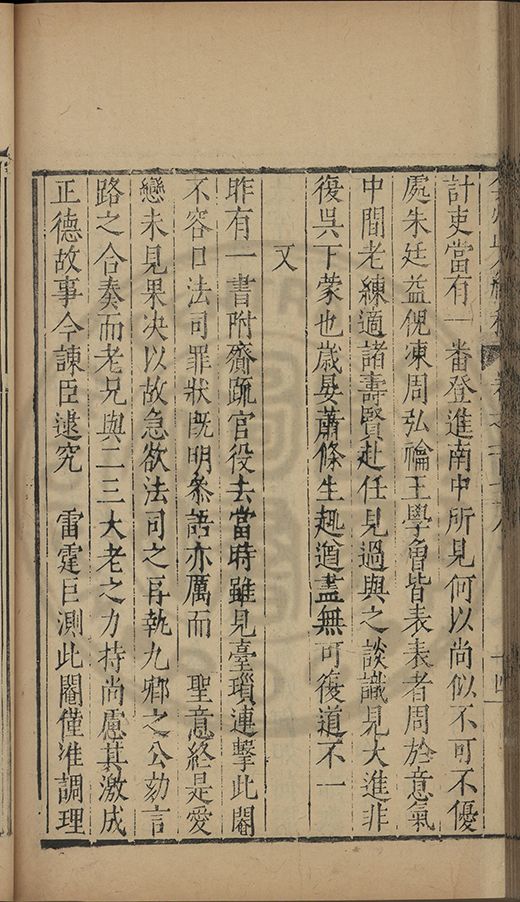 計吏當有一番登進南中所見何以尚似不可不優
處朱廷益倪凍周弘禴王學魯皆表表者周於意氣
中間老練適諸壽賢赴任見過與之談識見大進非
復吳下蒙也歲晏蕭條生趣遒盡無可復道不一
又
昨有一書附齎疏官役去當時雖見臺瑣連擊此閹
不容口法司罪狀既明条語亦厲而 聖意終是愛
戀未見果决以故急欲法司之再執九鄉之公劾言
路之合奏而老兄與二三大老之力持尚慮其激成
正德故事今諫臣逮究 雷霆叵測此閹僅准調理